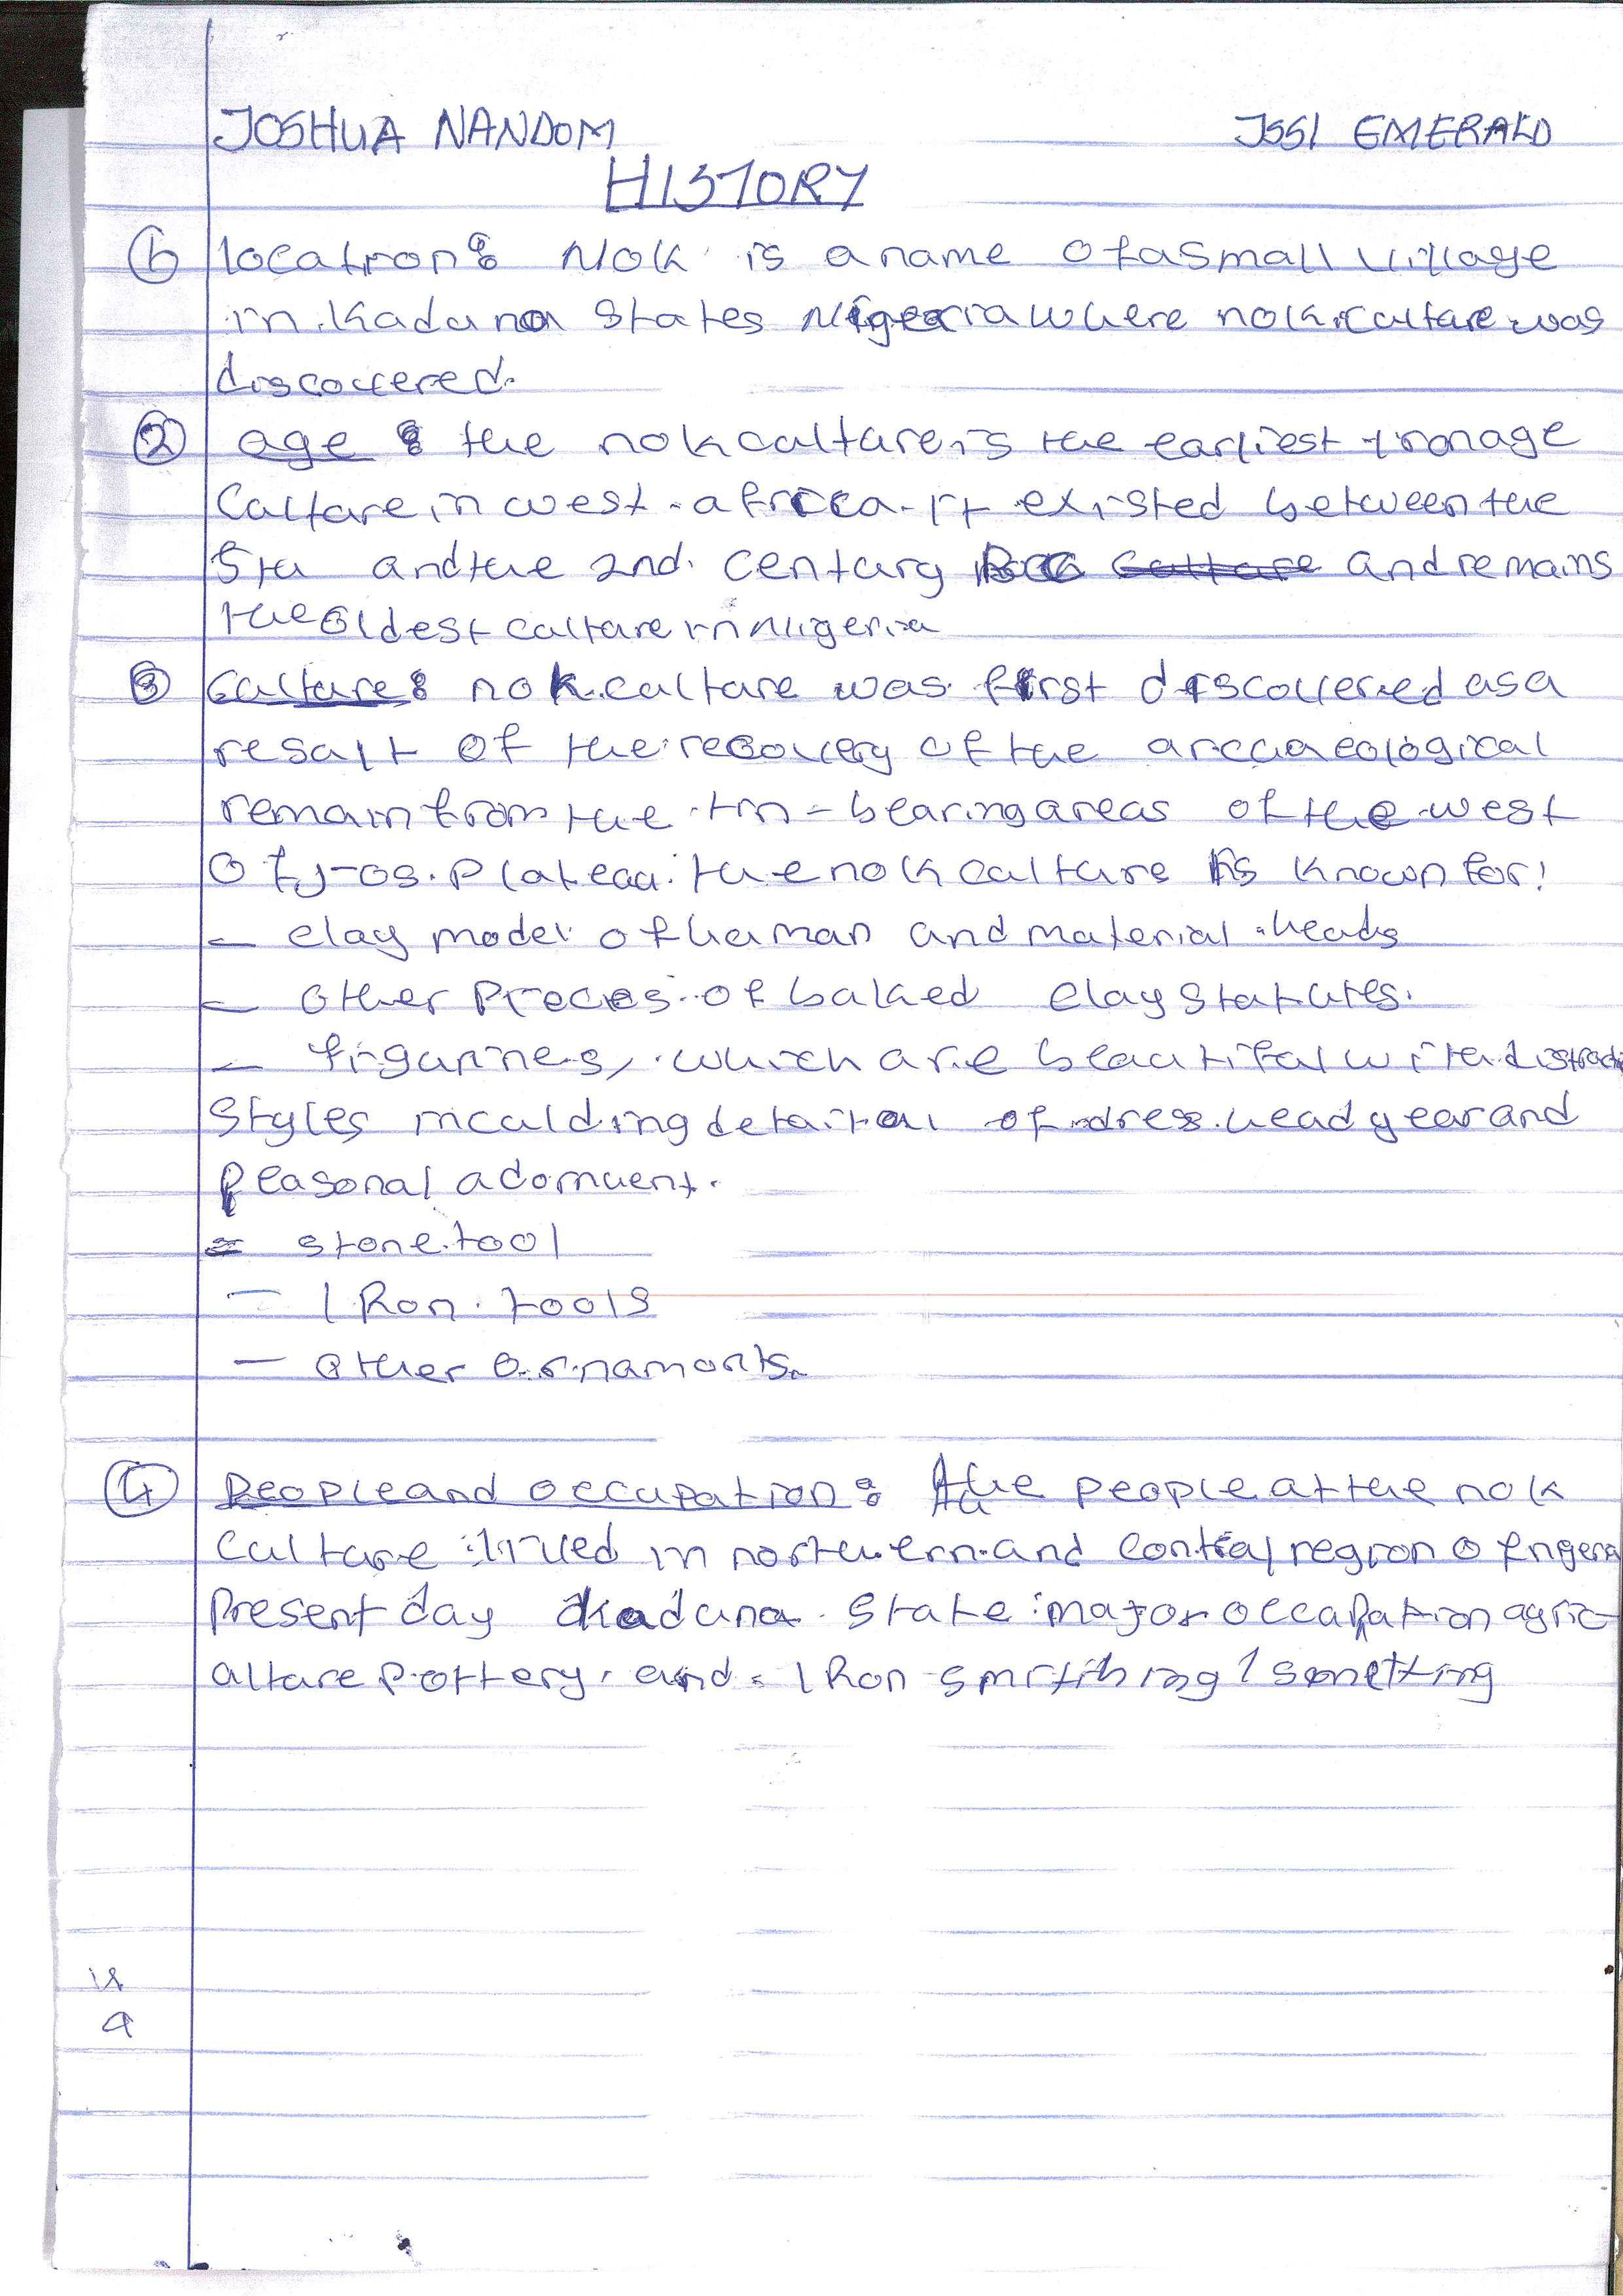 JOSHUA NANDOM JSS1 EMERALD
HISTORY
① location: Nok is a name of a small village
in Kaduna states Nigeria where nok culture was
discovered.
② age: the nok culture is the earliest iron age
Culture in west-africa. It existed between the
5th and the 2nd century BC and remains
the oldest culture in Nigeria
③ Culture: nok culture was first discovered as a
result of the recovery of the archaeological
remain from the tin-bearing areas of the west
of Jos. Plateau. the nok culture is known for:
- clay model of human and material heads
- other pieces of baked clay statutes.
- figurines, which are beautiful with
Styles including of dress head gear and
peasonal adornment.
- stone tool
- IRon tools
- other ornaments.
④ People and occupation: the people at the nok
culture lived in northern and central region of
Present day Kaduna state major occupation agric-
ulture pottery, and IRon /